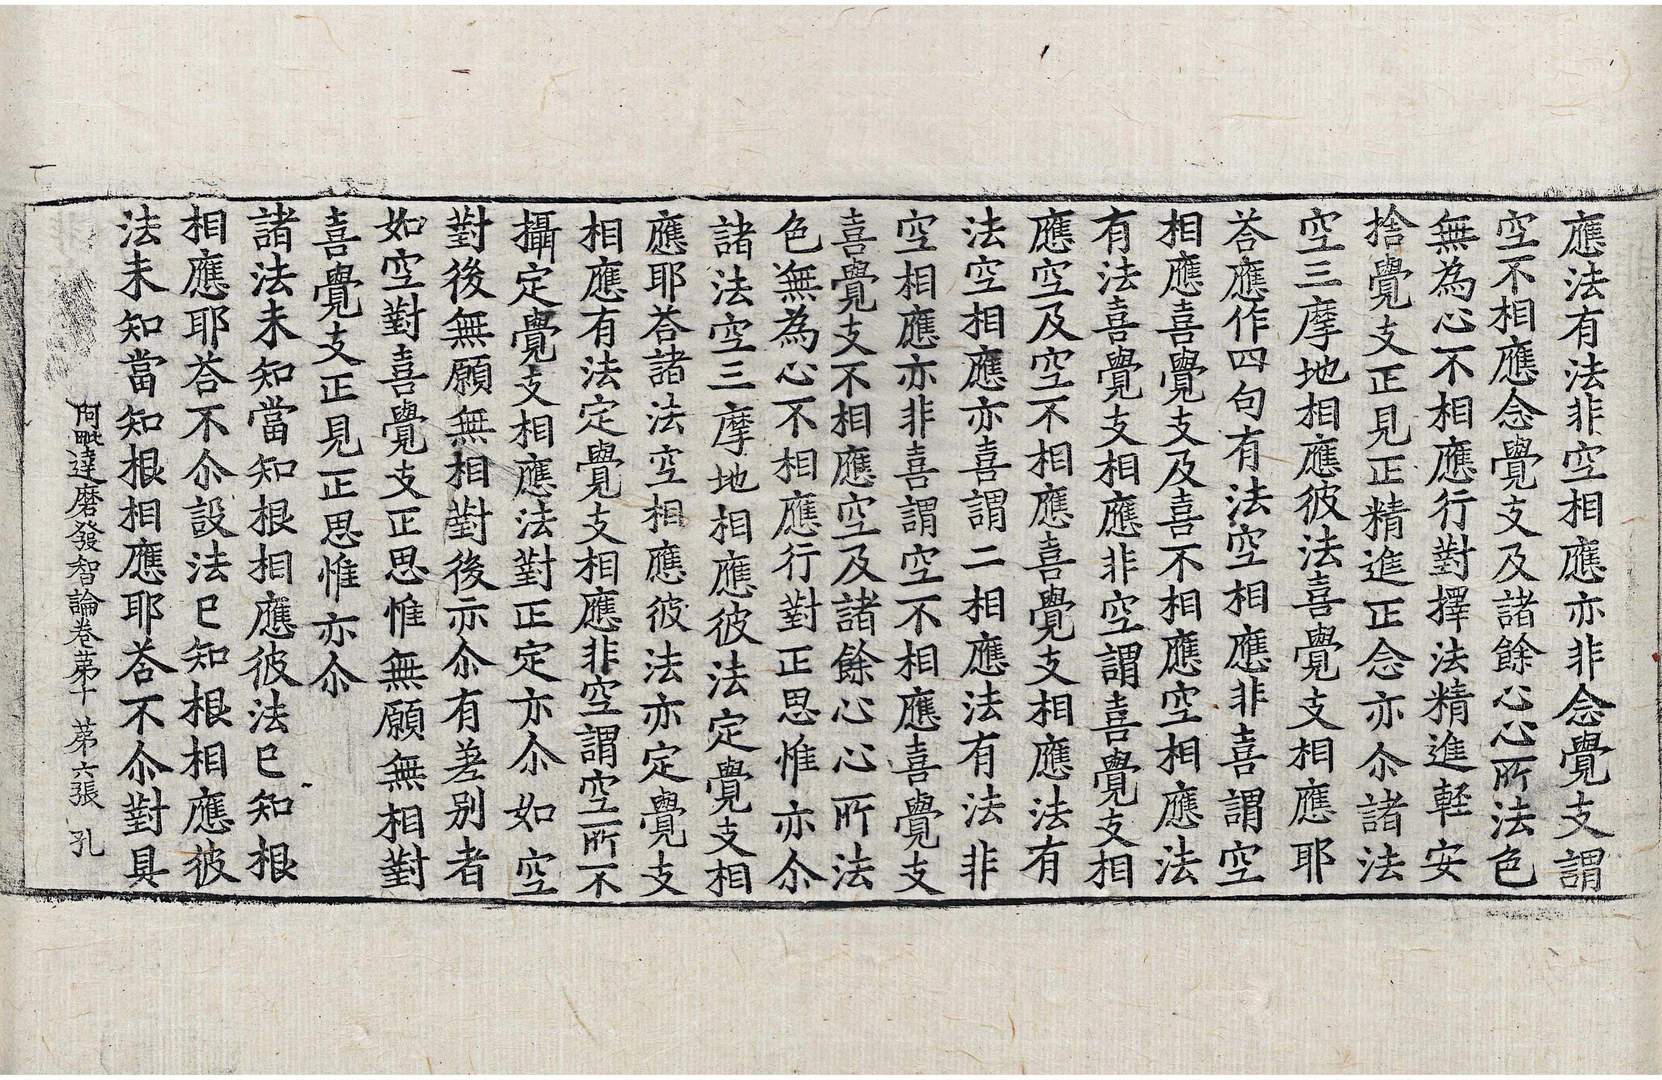 應法有法非空相應亦非念覺支謂
空不相應念覺支及諸餘心心所法色
無為心不相應行對擇法精進輕安
捨覺支正見正精進正念亦尒諸法
空三摩地相應彼法喜覺支相應耶
荅應作四句有法空相應非喜謂空
相應喜覺支及喜不相應空相應法
有法喜覺支相應非空謂喜覺支相
應空及空不相應喜覺支相應法有
法空相應亦喜謂二相應法有法非
空相應亦非喜謂空不相應喜覺支
喜覺支不相應空及諸餘心心所法
色無為心不相應行對正思惟亦尒
諸法空三摩地相應彼法定覺支相
應耶荅諸法空相應彼法亦定覺支
相應有法定覺支相應非空謂空所不
攝定覺支相應法對正定亦尒如空
對後無願無相對後亦尒有差別者
如空對喜覺支正思惟無願無相對
喜覺支正見正思惟亦尒
諸法未知當知根相應彼法已知根
相應耶荅不尒設法已知根相應彼
法未知當知根相應耶荅不尒對具
阿毗達磨發智論卷苐十 苐六張 孔